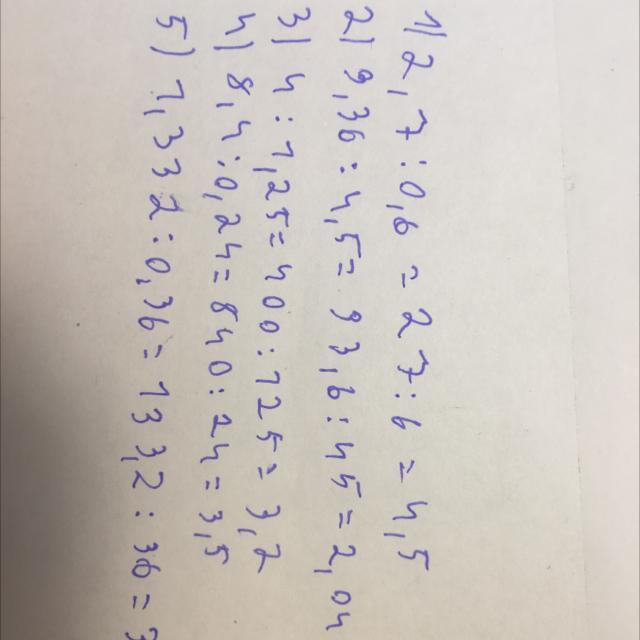 1) 2,7 : 0,6 = 27 : 6 = 4,5
2) 9,36 : 4,5 = 93,6 : 45 = 2,04
3) 4 : 1,25 = 400 : 125 = 3,2
4) 8,4 : 0,24 = 840 : 24 = 3,5
5) 1,332 : 0,36 = 133,2 : 36 = 3